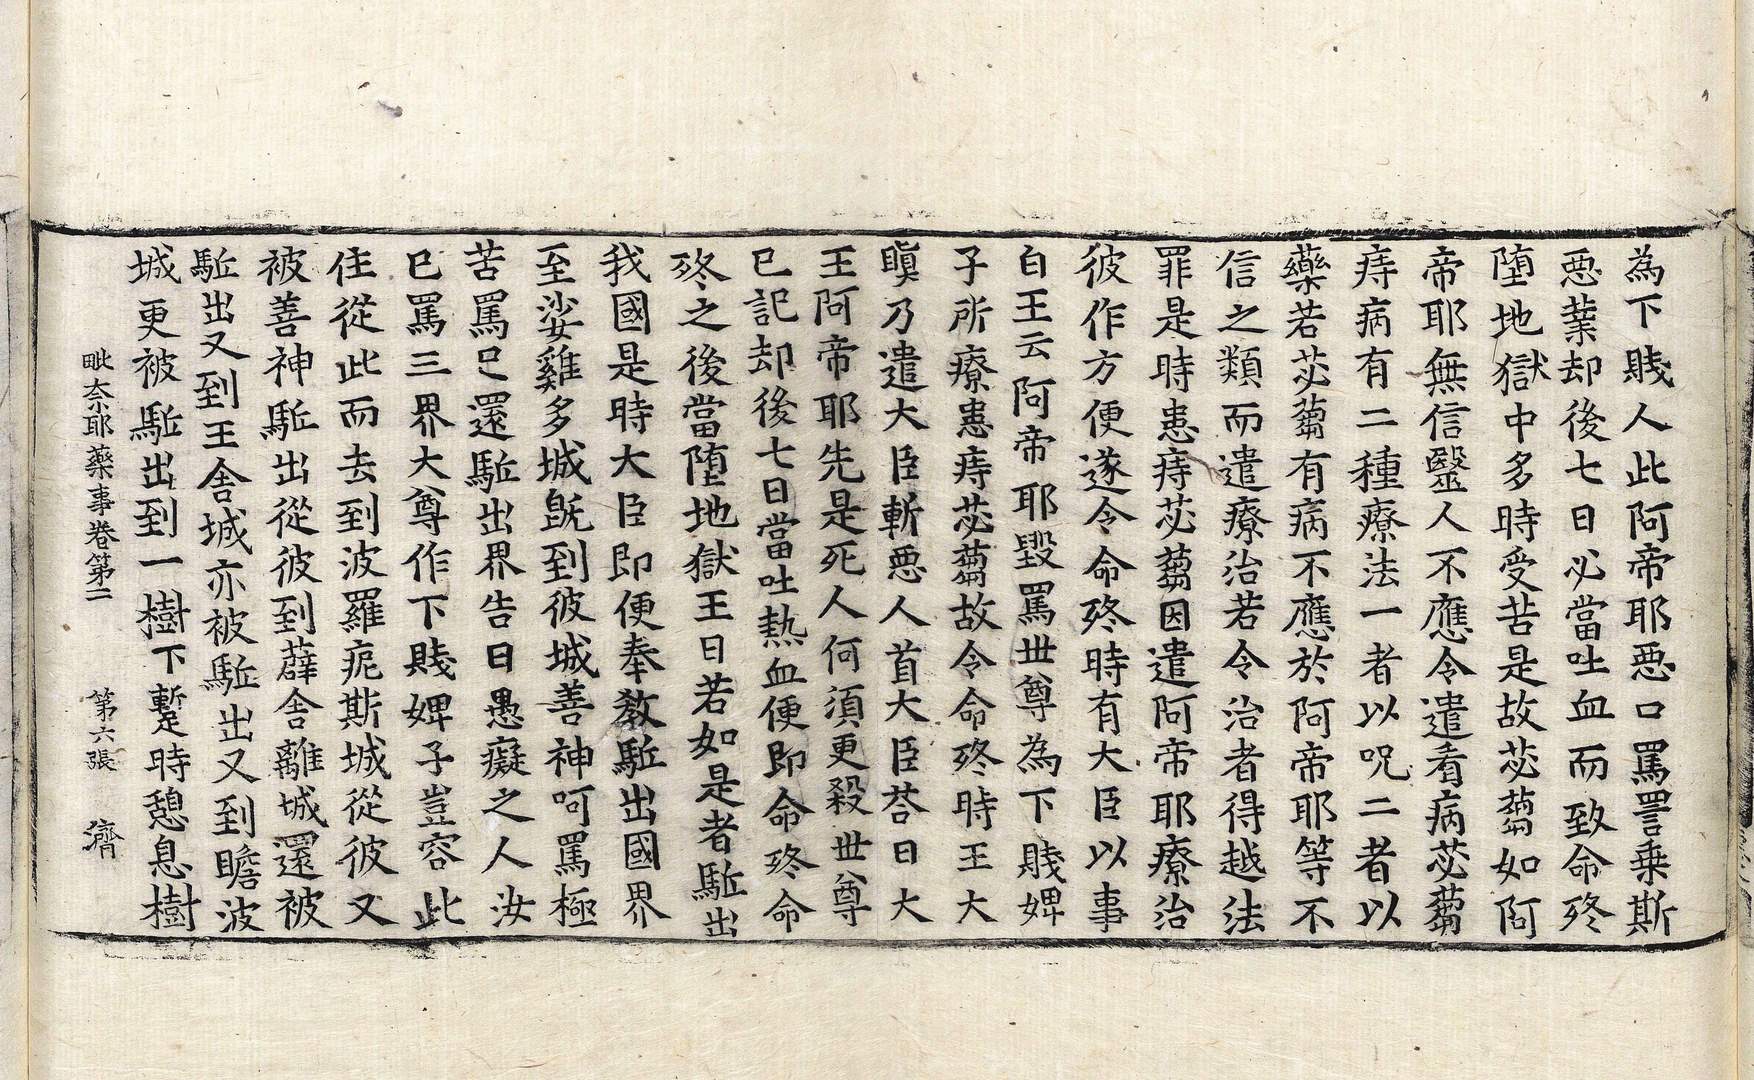 為下賤人此阿帝耶惡口罵詈乗斯
惡業却後七日必當吐血而致命終
堕地獄中多時受苦是故苾蒭如阿
帝耶無信毉人不應令遣看病苾蒭
痔病有二種療法一者以呪二者以
藥若苾蒭有病不應於阿帝耶等不
信之類而遣療治若令治者得越法
罪是時患痔苾蒭因遣阿帝耶療治
彼作方便遂令命終時有大臣以事
白王云阿帝耶毀罵世尊為下賤婢
子所療患痔苾蒭故令命終時王大
瞋乃遣大臣斬惡人首大臣荅曰大
王阿帝耶先是死人何須更殺世尊
已記却後七日當吐熱血便即命終命
終之後當堕地獄王曰若如是者駈出
我國是時大臣即便奉教駈出國界
至娑雞多城旣到彼城善神呵罵極
苦罵已還駈出界告曰愚癡之人汝
已罵三界大尊作下賤婢子豈容此
住從此而去到波羅痆斯城從彼又
被善神駈出從彼到薜舍離城還被
駈出又到王舍城亦被駈出又到瞻波
城更被駈出到一樹下蹔時憩息樹
毗奈耶藥事卷第二 第六張 濟